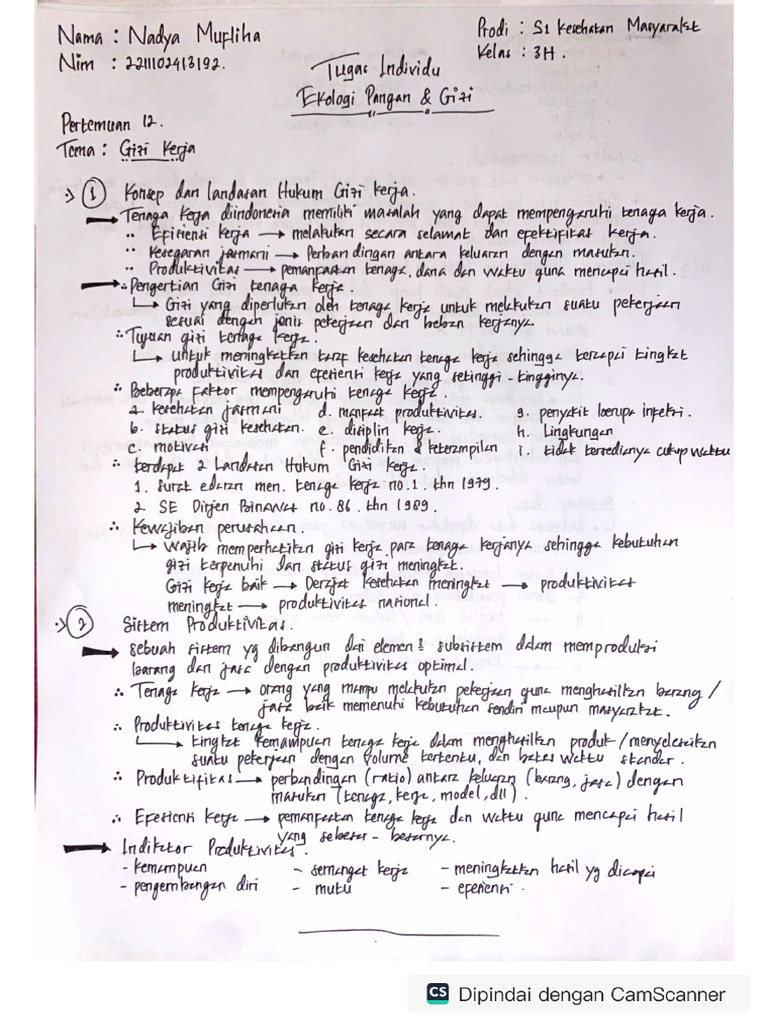 Nama : Nadya Mufliha
Prodi : S1 Kesehatan Masyarakat
Nim : 2211102413192.
Kelas : 3H.
Tugas Individu
Ekologi Pangan & Gizi
Pertemuan 12.
Tema : Gizi Kerja
① Konsep dan landasan Hukum Gizi kerja.
Tenaga kerja diindonesia memiliki masalah yang dapat mempengaruhi tenaga kerja.
Efisiensi kerja → melakukan secara selamat dan efektifitas kerja.
Kesegaran jasmani → Perbandingan antara keluaran dengan masukan.
Produktivitas → pemanfaatan tenaga, dana dan waktu guna mencapai hasil.
Pengertian Gizi tenaga kerja.
Gizi yang diperlukan oleh tenaga kerja untuk melakukan suatu pekerjaan
sesuai dengan jenis pekerjaan dan beban kerjanya
∴ Tujuan gizi tenaga kerja.
untuk meningkatkan taraf kesehatan tenaga kerja sehingga tercapai tingkat
produktivitas dan efesiensi kerja yang setinggi-tingginya.
∴ Beberapa Faktor mempengaruhi tenaga kerja.
a. kesehatan jasmani d. manfaat produktivitas. g. penyakit berupa infeksi.
b. status gizi kesehatan. e. disiplin kerja. h. Lingkungan
c. motivasi f. pendidikan & keterampilan i. tidak tersedianya cukup waktu
∴ terdapat 2 Landasan Hukum Gizi kerja.
1. Surat edaran men. tenaga kerja no.1. thn 1979.
2 SE Dirjen Binawas no. 86. thn 1989.
∴ Kewajiban perusahaan.
wajib memperhatikan gizi kerja para tenaga kerjanya sehingga kebutuhan
gizi terpenuhi dan status gizi meningkat.
Gizi kerja baik → Derajat kesehatan meningkat → produktivitas
meningkat → produktivitas nasional.
② Sistem Produktivitas.
sebuah sistem yg dibangun dari elemen & subsistem dalam memproduksi
barang dan jasa dengan produktivitas optimal.
∴ Tenaga kerja → orang yang mampu melakukan pekerjaan guna menghasilkan barang/
jasa baik memenuhi kebutuhan sendiri maupun masyarakat.
∴ Produktivitas tenaga kerja.
tingkat kemampuan tenaga kerja dalam menghasilkan produk/menyelesaikan
suatu pekerjaan dengan volume tertentu, dan batas waktu standar.
∴ Produktifitas → perbandingan (ratio) antara keluaran (barang, jasa) dengan
masukan (tenaga, kerja, model, dll).
∴ Efesiensi Kerja → pemanfaatan tenaga kerja dan waktu guna mencapai hasil
yang sebesar-besarnya.
Indikator Produktivitas.
- kemampuan - semangat kerja - meningkatkan hasil yg dicapai
- pengembangan diri - mutu - efesiensi.
CS Dipindai dengan CamScanner